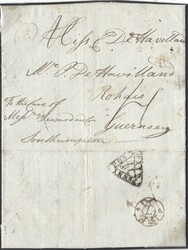 Miss E De Havilland
Mr. P. De Havilland
Rohais
To the care of
Guernsey
Southampton